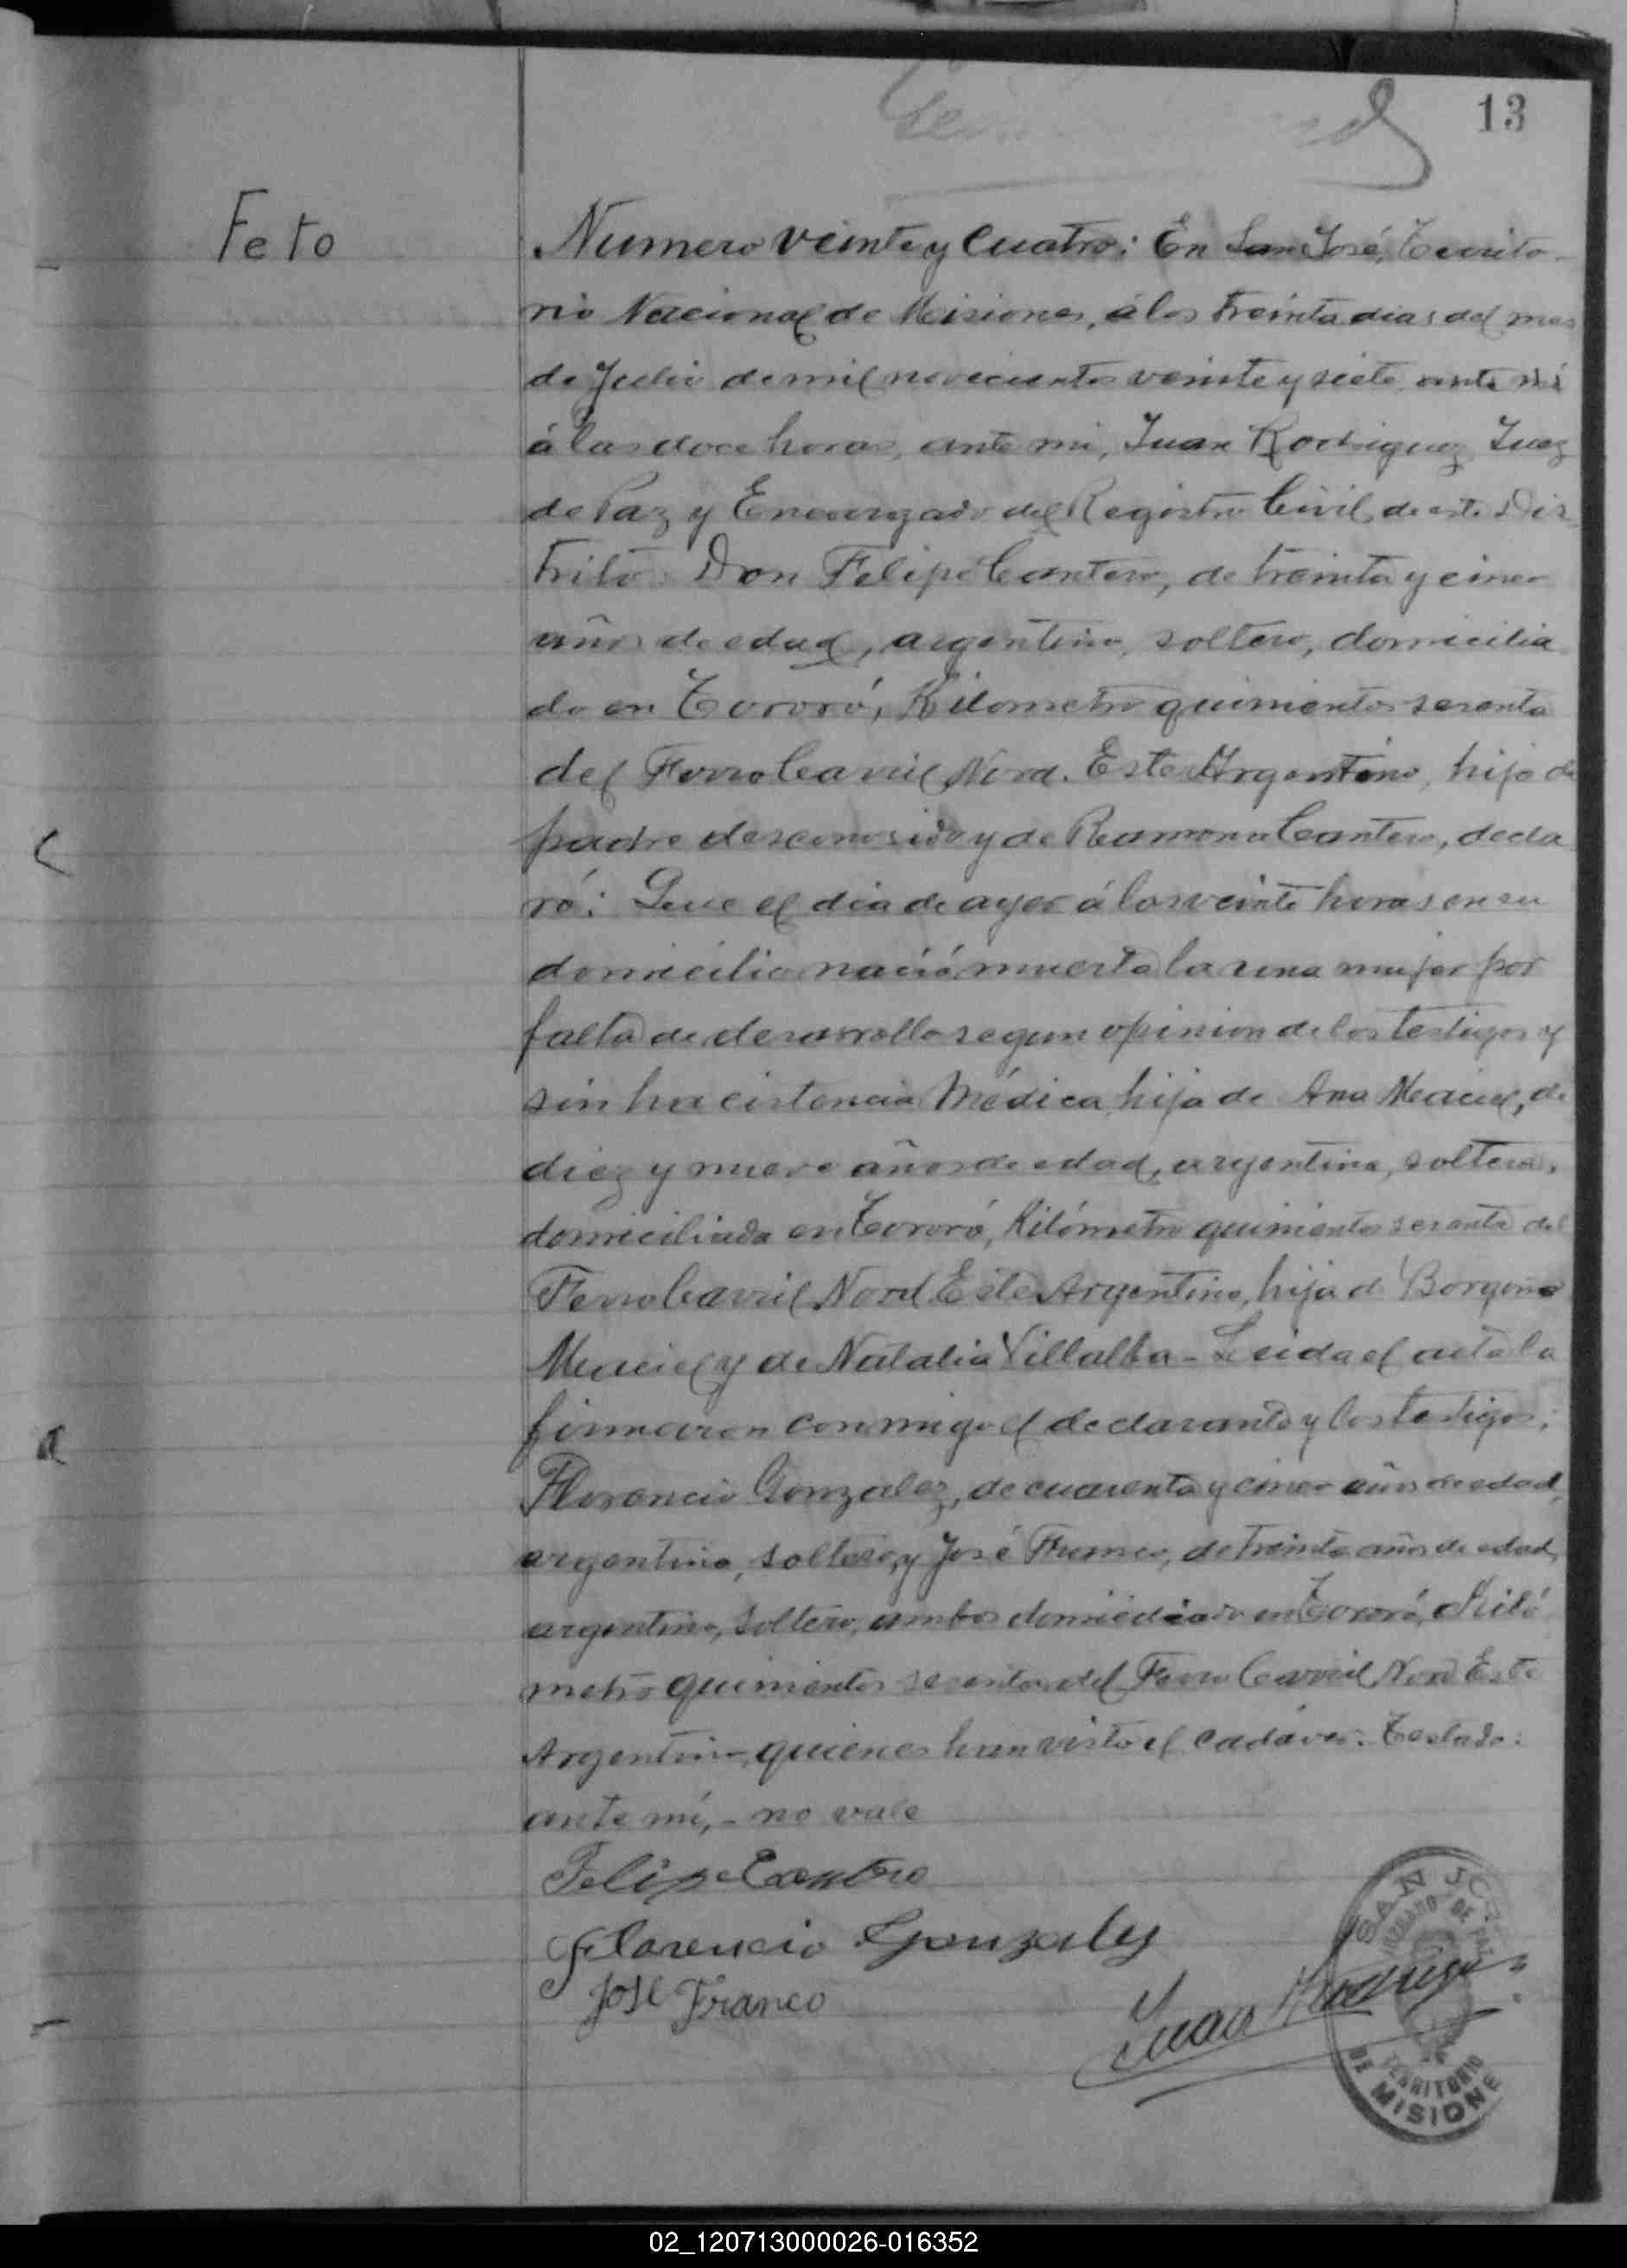 13
Feto
Numero veinte y cuatro: En San José, Territo-
rio Nacional de Misiones, á los treinta dias del mes
de Julio de mil novecientos veinte y siete, ante mi
á las doce horas, ante mi, Juan Rodriguez Juez
de Paz y Encargado del Registro Civil de este Dis
trito: Don Felipe Cantero, de treinta y cinco
años de edad, argentino, soltero, domicilia
do en Tororó, Kilometro quinientos sesenta
del Ferro Carril Nord. Este Argentino, hijo de
padre desconosido y de Ramona Cantero, decla
ró: Que el dia de ayer á las veinte horas en su
domicilio nació muerta la una mujer por
falta de desarrollo segun opinion de los testigos y
sin hacistencia Médica, hija de Ana Maciel, de
diez y nueve años de edad, argentina, soltera,
domiciliada en Tororó, Kilómetro quinientos sesenta del
Ferro Carril Nord Este Argentino, hija de
Maciel y de Natalia Villalba - Leida el acta la
firmaron conmigo el declarante y los testigos:
Florencio Gonzalez, de cuarenta y cinco años de edad,
argentino, soltero, y José Franco, de treinta años de edad,
argentino, soltero, ambos domiciliado en Tororó, Kiló
metro quinientos sesenta del Ferro Carril Nord Este
Argentino, quienes han visto el cadáver. Testado:
ante mí, - no vale
Felipe Cantero
Florencio Gonzalez
José Franco
Juan Rodriguez
SAN JOSE
JUZGADO DE PAZ
TERRITORIO
DE MISIONE
02_120713000026-016352